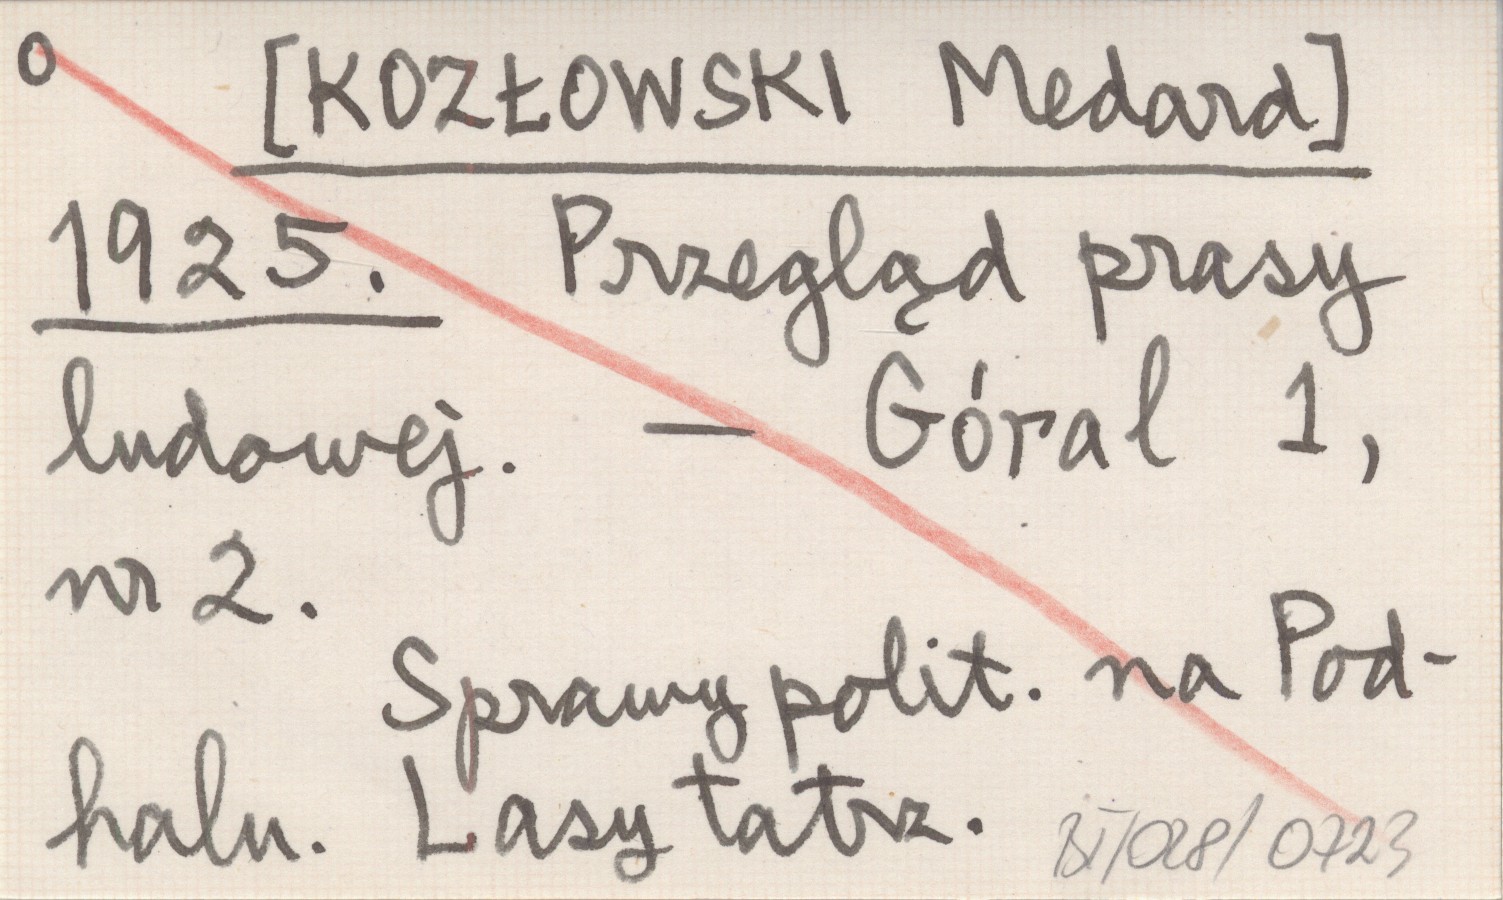 o [KOZŁOWSKI Medard]
1925. Przegląd prasy
ludowej. — Góral 1,
nr 2.
Sprawy polit. na Pod-
halu. Lasy tatrz.
BI/028/0723